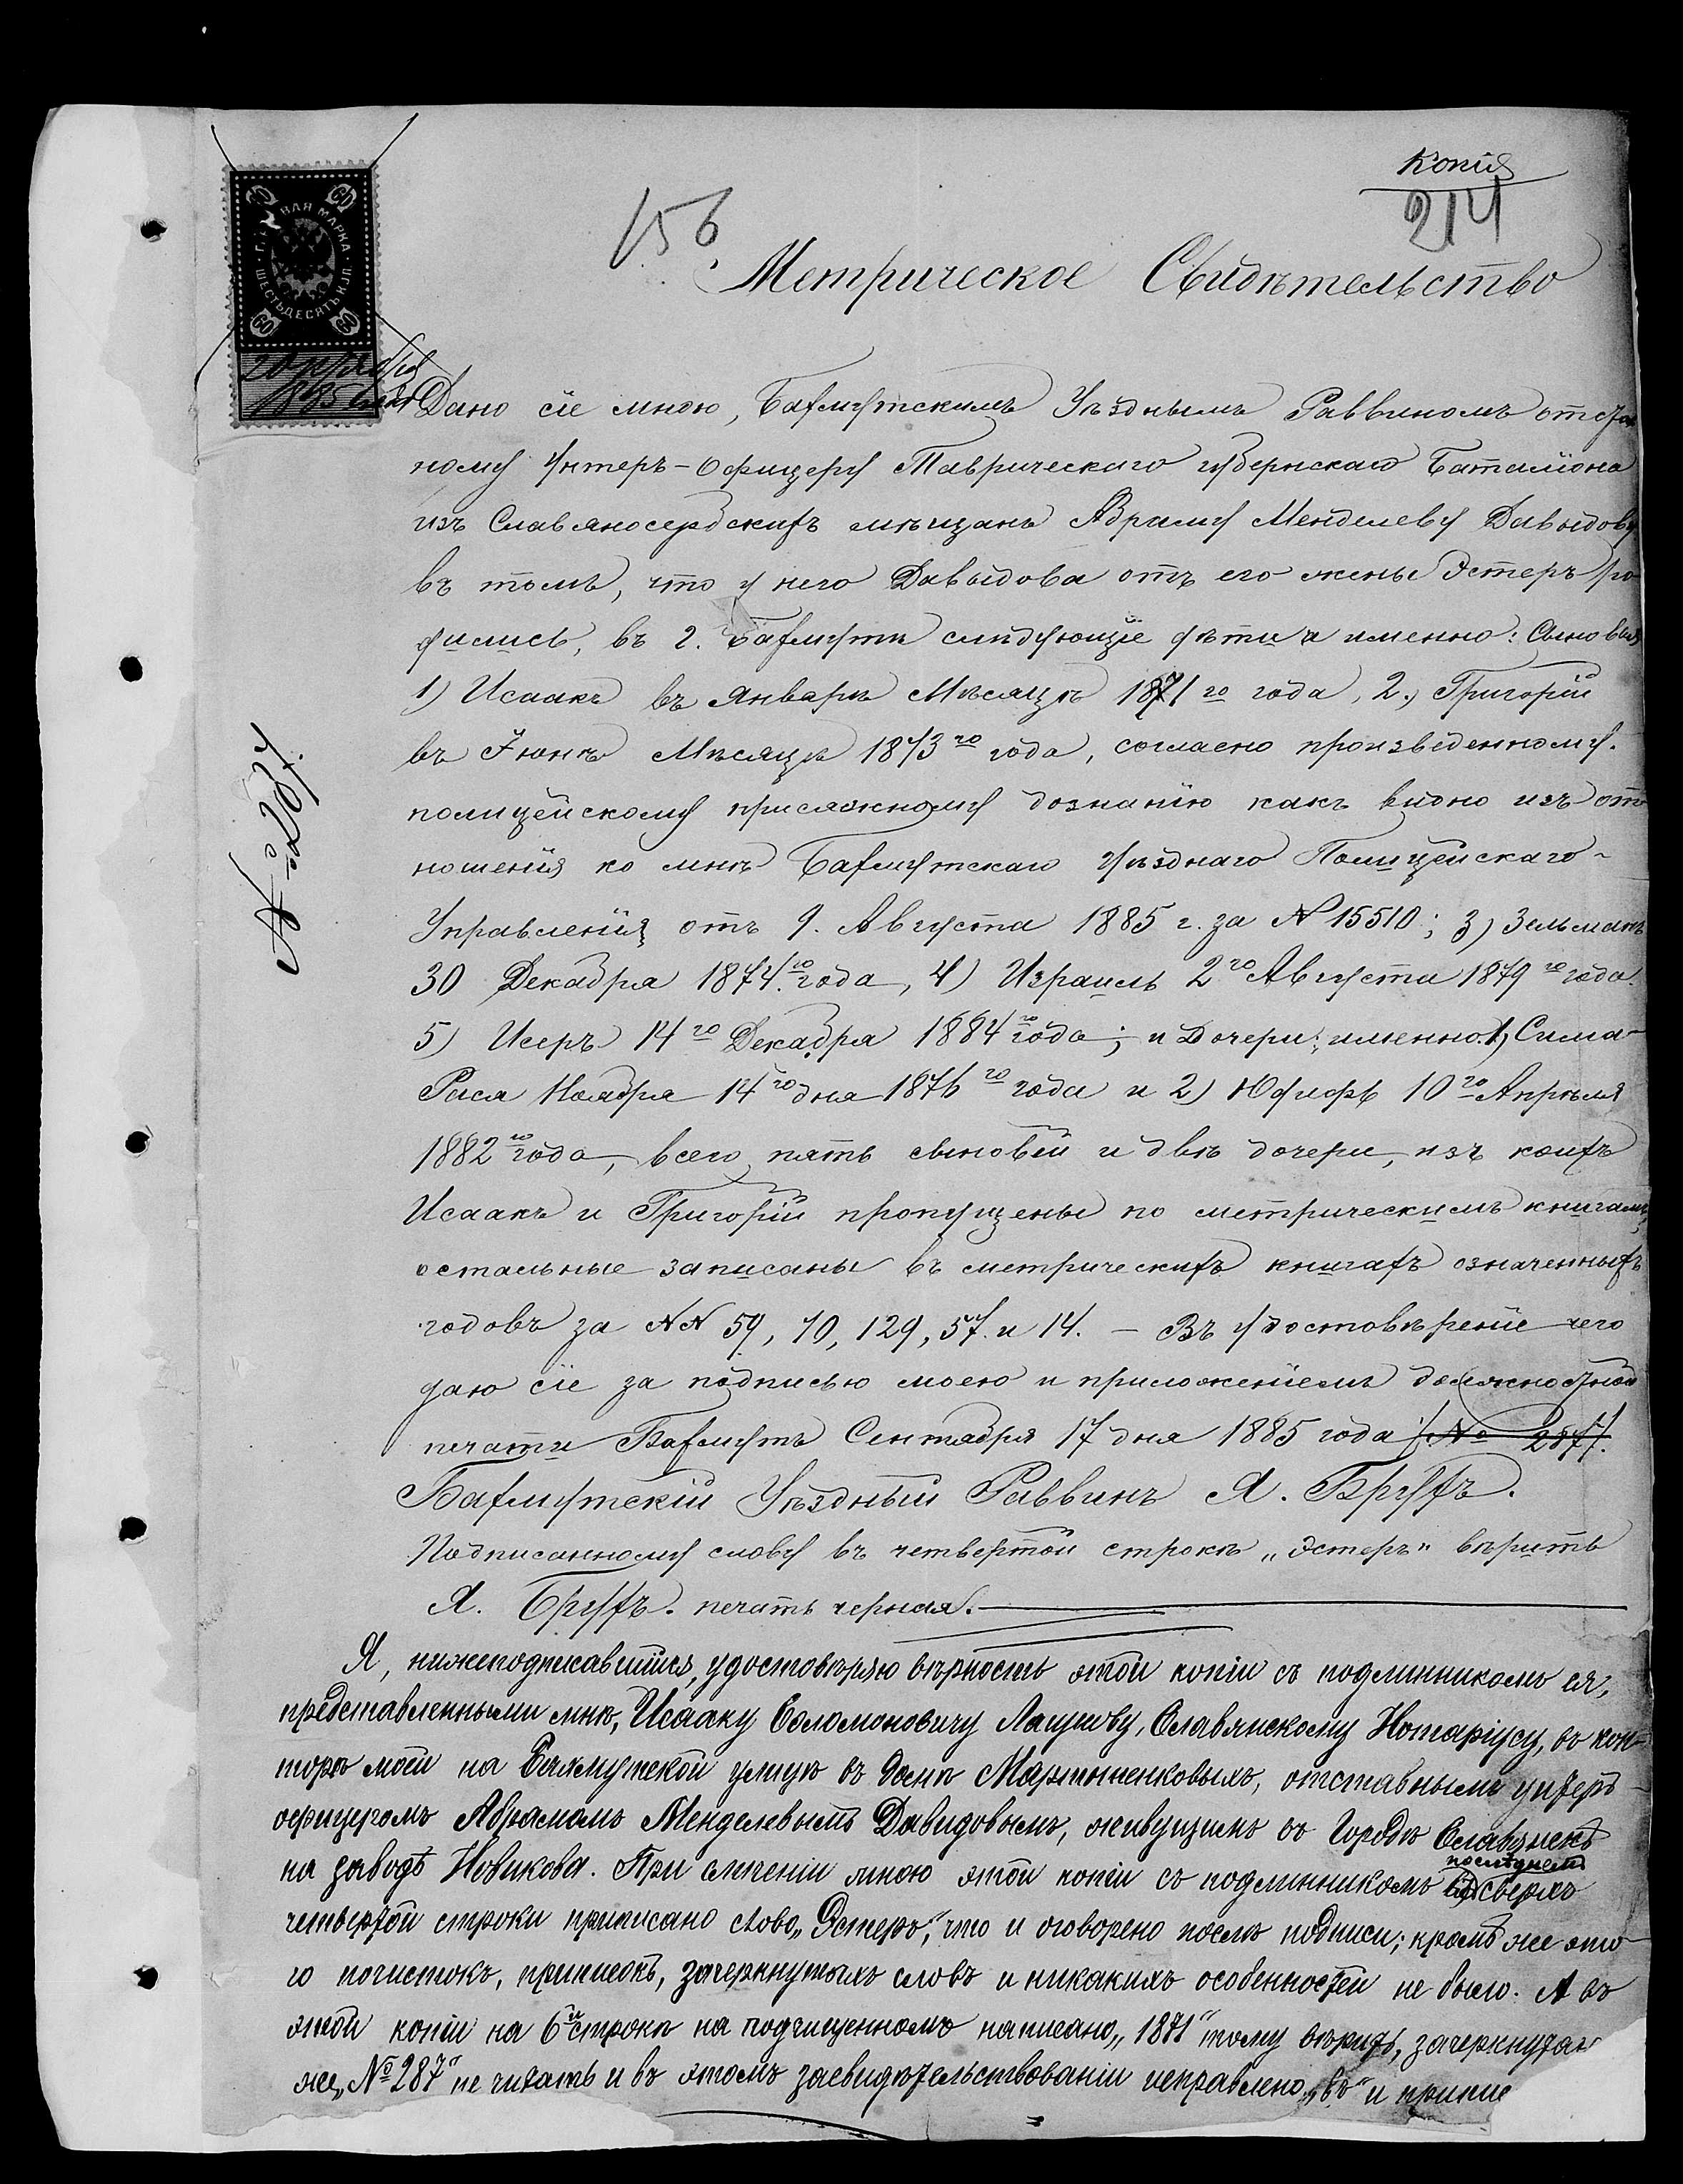 Копія
214
156
ГЕРБОВАЯ МАРКА
ШЕСТЬДЕСЯТЪ КОП.
60 60
60 60
1885
№ 287.
Метрическое Свидѣтельство
Дано сіе мною, Бахмутскимъ Уѣзднымъ Раввиномъ отстав
ному Унтеръ-Офицеру Таврическаго губернскаго Баталіона
изъ Славяносербскихъ мѣщанъ Абраму Менделеву Давыдову
въ томъ, что у него Давыдова отъ его жены Эстеръ ро-
дились, въ г. Бахмутѣ слѣдующіе дѣти а именно: Сыновья
1) Исаакъ въ Январѣ Мѣсяцѣ 1871 го года, 2.) Григорій
въ Іюнѣ Мѣсяцѣ 1873 го года, согласно произведенному
полицейскому присяжному дознанію какъ видно изъ от
ношенія ко мнѣ Бахмутскаго уѣзднаго Полицейскаго
Управленія отъ 9. Августа 1885 г. за № 15510; 3) Зельманъ
30 Декабря 1874 го года, 4) Израиль 2 го Августа 1879 го года
5) Исеръ 14 го Декабря 1884 го года; и Дочери: именно. 1) Сима
Рася Ноября 14 го дня 1876 го года и 2) Юдифь 10 го Апрѣля
1882 го года, всего пять сыновей и двѣ дочери, изъ коихъ
Исаакъ и Григорій пропущены по метрическимъ книгамъ,
остальные записаны въ метрическихъ книгахъ означенныхъ
годовъ за №№ 59, 70, 129, 57. и 14. — Въ удостовѣреніе чего
даю сіе за подписью моею и приложеніемъ должностной
печати Бахмутъ Сентября 17 дня 1885 года № 287.
Бахмутскій Уѣздный Раввинъ Я. Брухъ.
Надписанному слову въ четвертой строкѣ „Эстеръ" вѣрить
Я. Брухъ. печать черная.
Я, нижеподписавшійся, удостовѣряю вѣрность этой копіи съ подлинникомъ ея,
представленнымъ мнѣ, Исааку Соломоновичу Славянскому Нотаріусу, въ кон-
торѣ моей на Бахмутской улицѣ въ домѣ Мартыненковыхъ, отставнымъ унтеръ-
офицеромъ Абрамомъ Менделевымъ Давидовымъ, живущимъ въ Городѣ Славянскѣ
на заводѣ Новикова. При сличеніи мною этой копіи съ подлинникомъ въ последнемъ сверхъ
четвертой строки приписано слово „Эстеръ", что и оговорено послѣ подписи; кромѣ же это-
го почистокъ, приписокъ, зачеркнутыхъ словъ и никакихъ особенностей не было. А въ
этой копіи на 6й строкѣ на подчищенномъ написано „1871" тому вѣрить, зачеркнутаго
же „№ 287" не читать и въ этомъ засвидѣтельствованіи исправлено „въ" и припис